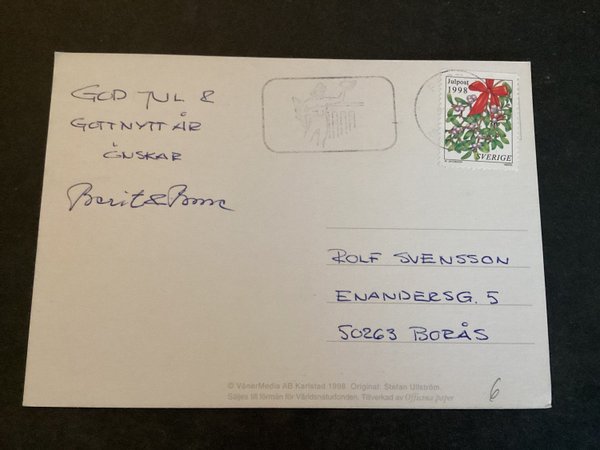 GOD JUL &
GOTT NYTT ÅR
ÖNSKAR
Berit & Bosse
Julpost
1998
SVERIGE
ROLF SVENSSON
ENANDERSG. 5
50263 BORÅS
© VänerMedia AB Karlstad 1998. Original: Stefan Ullström.
Säljes till förmån för Världsnaturfonden. Tillverkad av Offisina paper
6